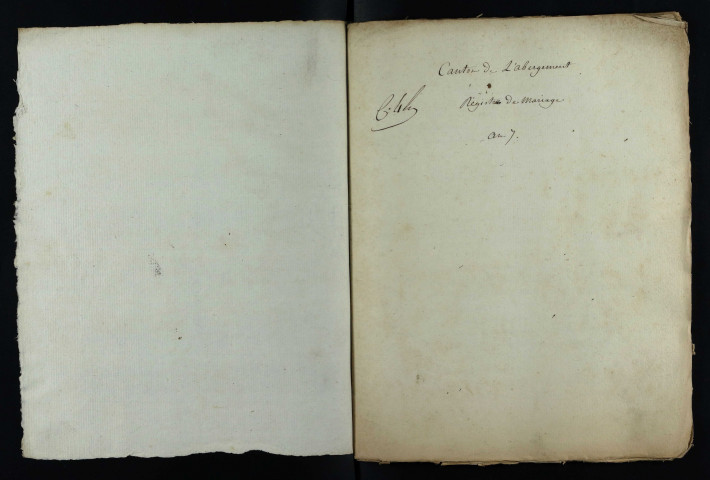 Canton de L'abergement
Registre de mariage
an 7.